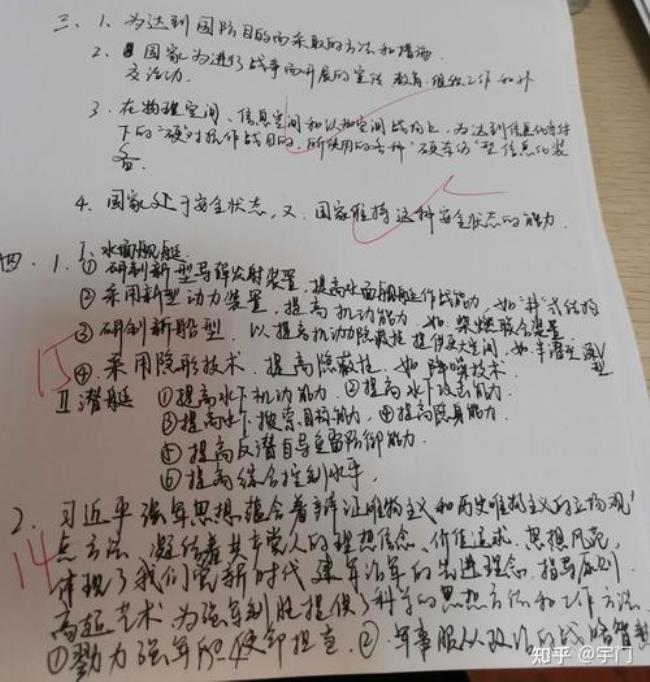 三、1. 为达到国防目的而采取的方法和措施.
2. 国家为进行战争而开展的宣传、教育、组织工作和外
交活动.
3. 在物理空间、信息空间和认知空间战场上,为达到信息化条件
下的“硬”对抗作战目的,所使用的各种“硬杀伤”型信息化装
备.
4. 国家处于安全状态,又 国家维持这种安全状态的能力.
四.1. I. 水面舰艇.
① 研制新型导弹发射装置,提高水面舰艇作战能力,如“井”式结构
② 采用新型动力装置,提高机动能力,如:柴燃联合装置
③ 研制新船型,以提高机动隐蔽性 提供更大空间,如:半潜 V
型
15
④ 采用隐形技术,提高隐蔽性,如降噪技术.
II 潜艇 ①提高水下机动能力.②提高水下攻击能力.
③提高水下搜索目标能力,④提高隐身能力.
⑤ 提高反潜自导鱼雷防御能力.
⑥ 提高综合控制水平.
2. 习近平强军思想蕴含着辩证唯物主义和历史唯物主义的立场观
14
点方法、凝结着共产党人的理想信念、价值追求、思想风范,
体现了我们党新时代建军治军的先进理念、指导原则
高超艺术 为强军制胜提供了科学的思想方法和工作方法
①勠力强军的使命担当.② 军事服从政治的战略智慧
知乎 @宇门